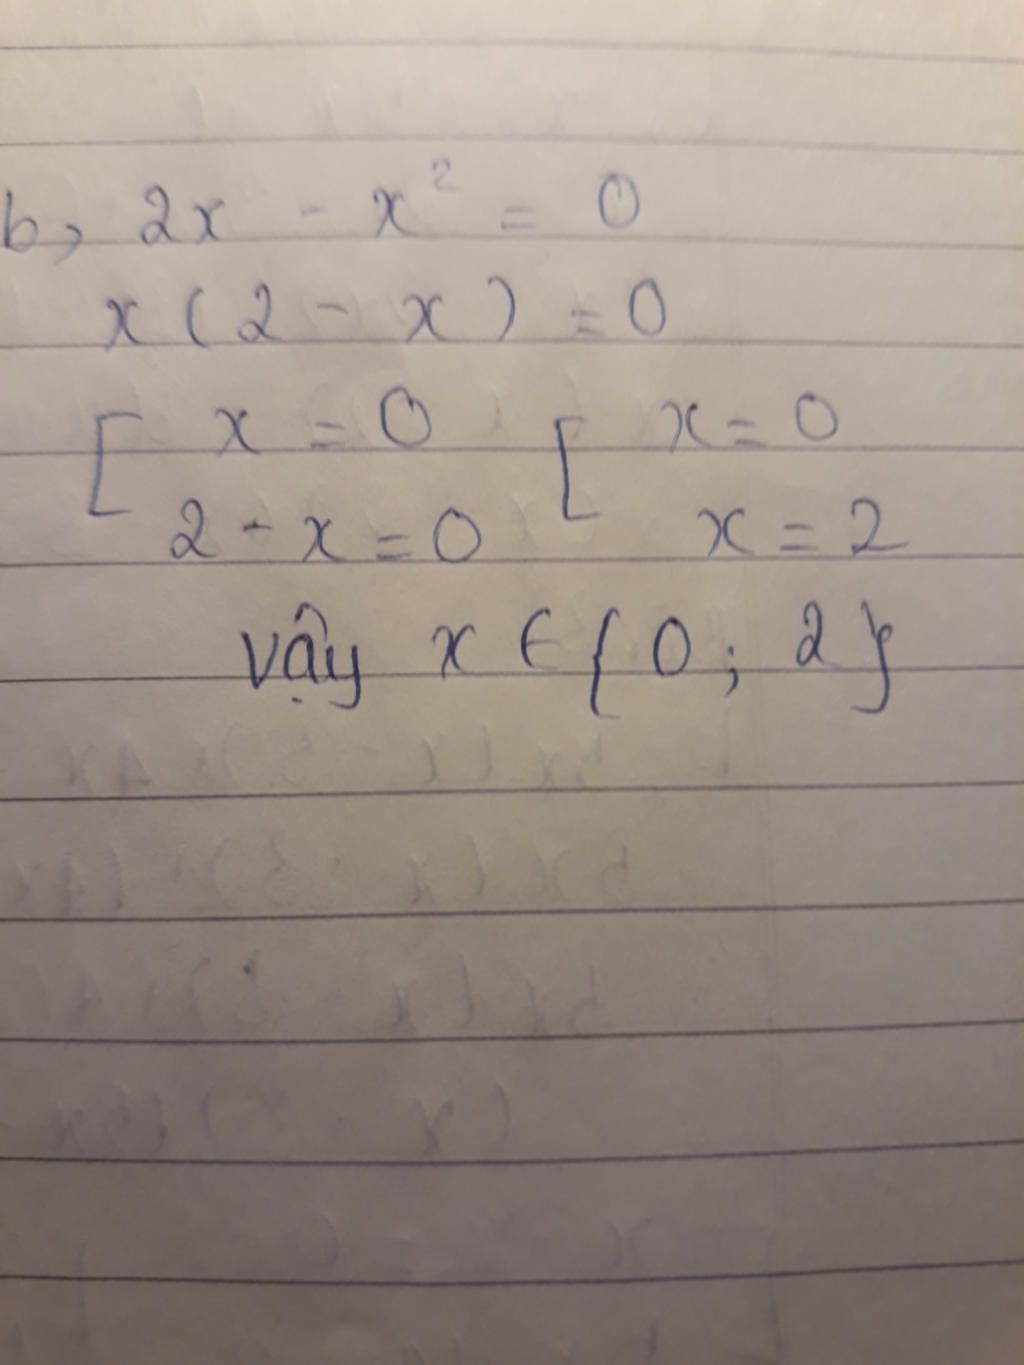 b, 2x - x² = 0
x ( 2 - x ) = 0
[ x = 0 [ x = 0
2 - x = 0 x = 2
vậy x ∈ { 0 ; 2 }